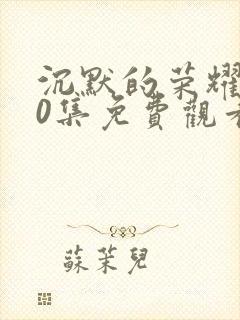 沉默的荣耀
0集免費觀看
蘇茉兒